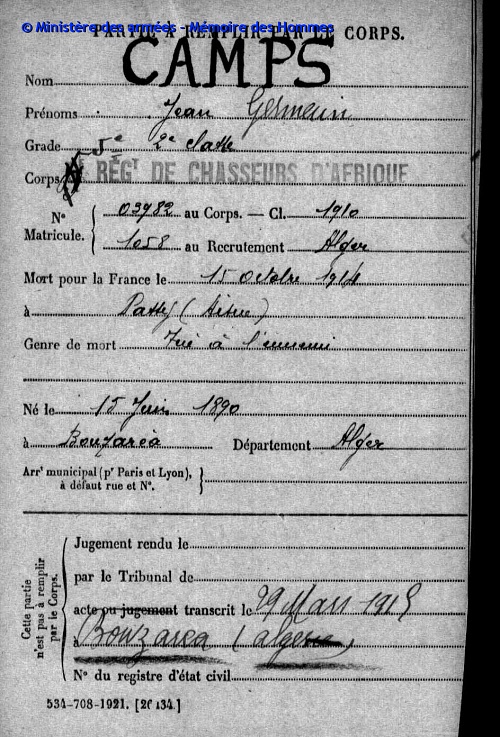 © Ministère des armées - Mémoire des Hommes
PARTIE À REMPLIR PAR LE CORPS.
CAMPS
Nom
Prénoms Jean Germain
Grade 2e Classe
Corps 5e RÉGT DE CHASSEURS D'AFRIQUE
N° Matricule. { 03982 au Corps. — Cl. 1910
1058 au Recrutement Alger
Mort pour la France le 15 octobre 1914
à (Aisne)
Genre de mort Tué à l'ennemi
Né le 15 Juin 1890
à Bouzaréa Département Alger
Arrt municipal (pr Paris et Lyon), à défaut rue et N°. }
Cette partie n'est pas à remplir par le Corps.
Jugement rendu le
par le Tribunal de
acte ou jugement transcrit le 29 Mars 1915
à Bouzarea (algerie)
N° du registre d'état civil
534-708-1921. [26134.]